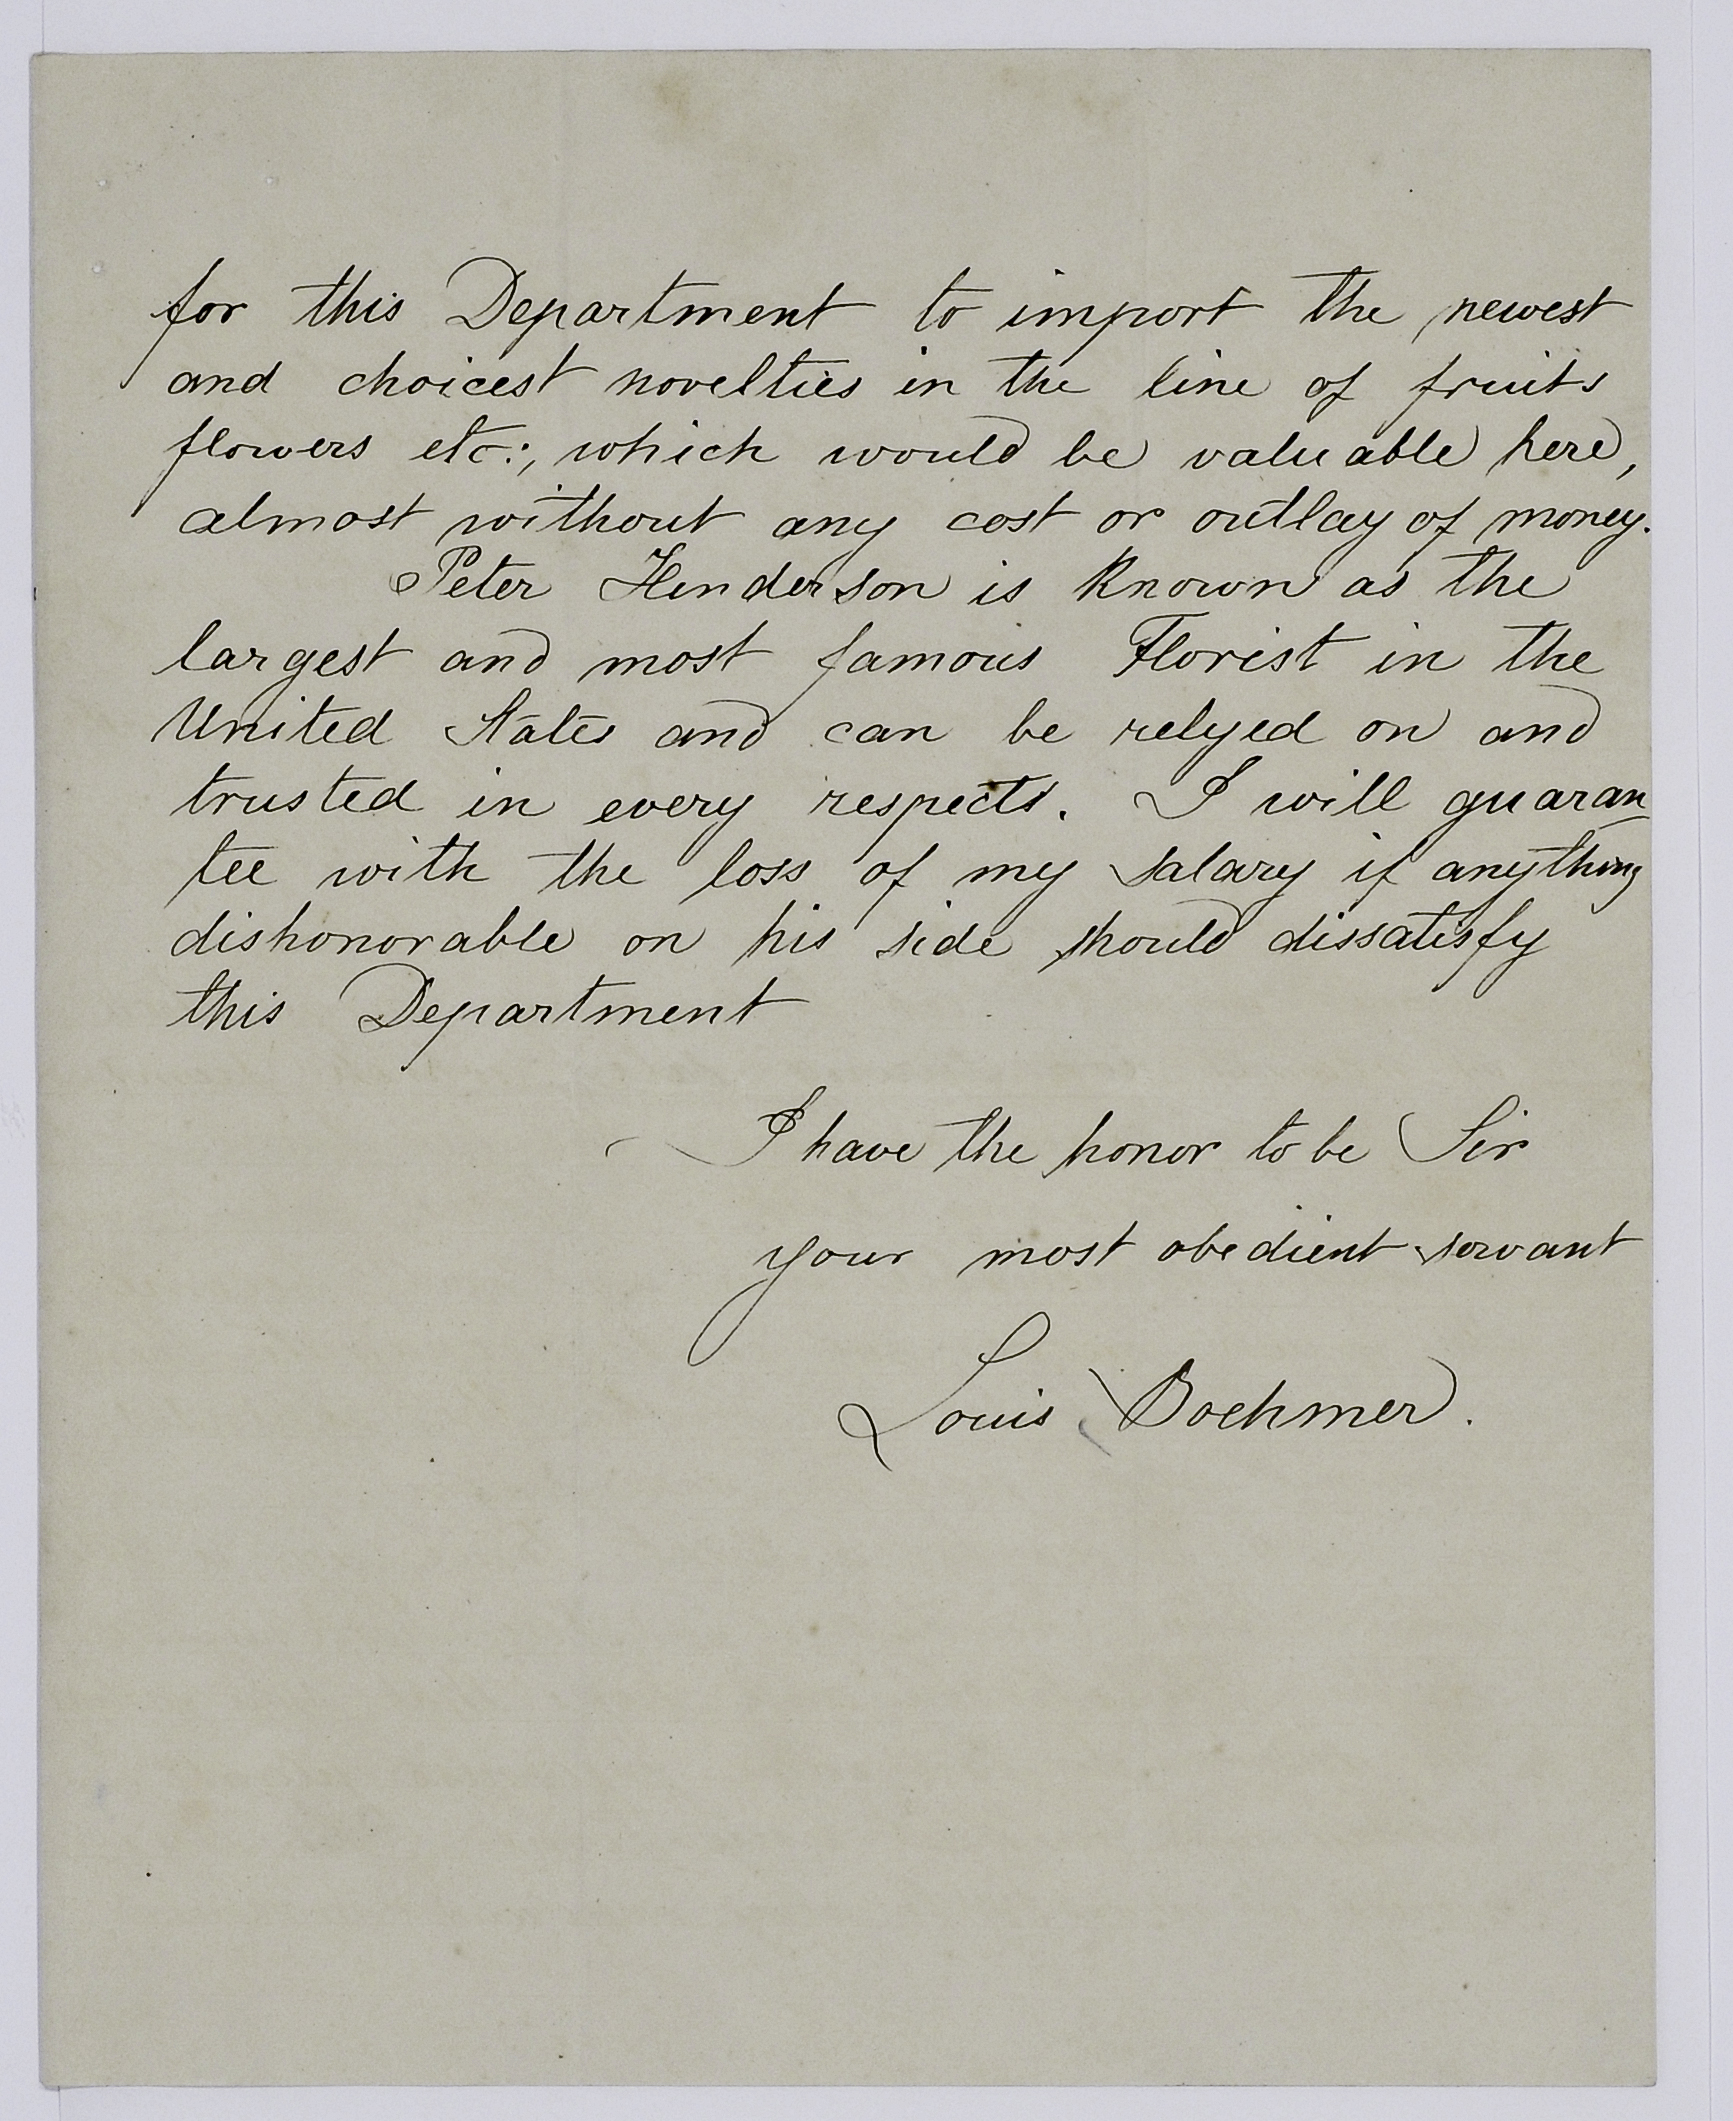 for this Department to import the newest
and choicest novelties in the line of fruits
flowers etc:, which would be valuable here,
almost without any cost or outlay of money.
Peter Henderson is known as the
largest and most famous Florist in the
United States and can be relyed on and
trusted in every respects. I will guaran
tee with the loss of my salary if anything
dishonorable on his side should dissatisfy
this Department
I have the honor to be Sir
your most obedient servant
Louis Boehmer.